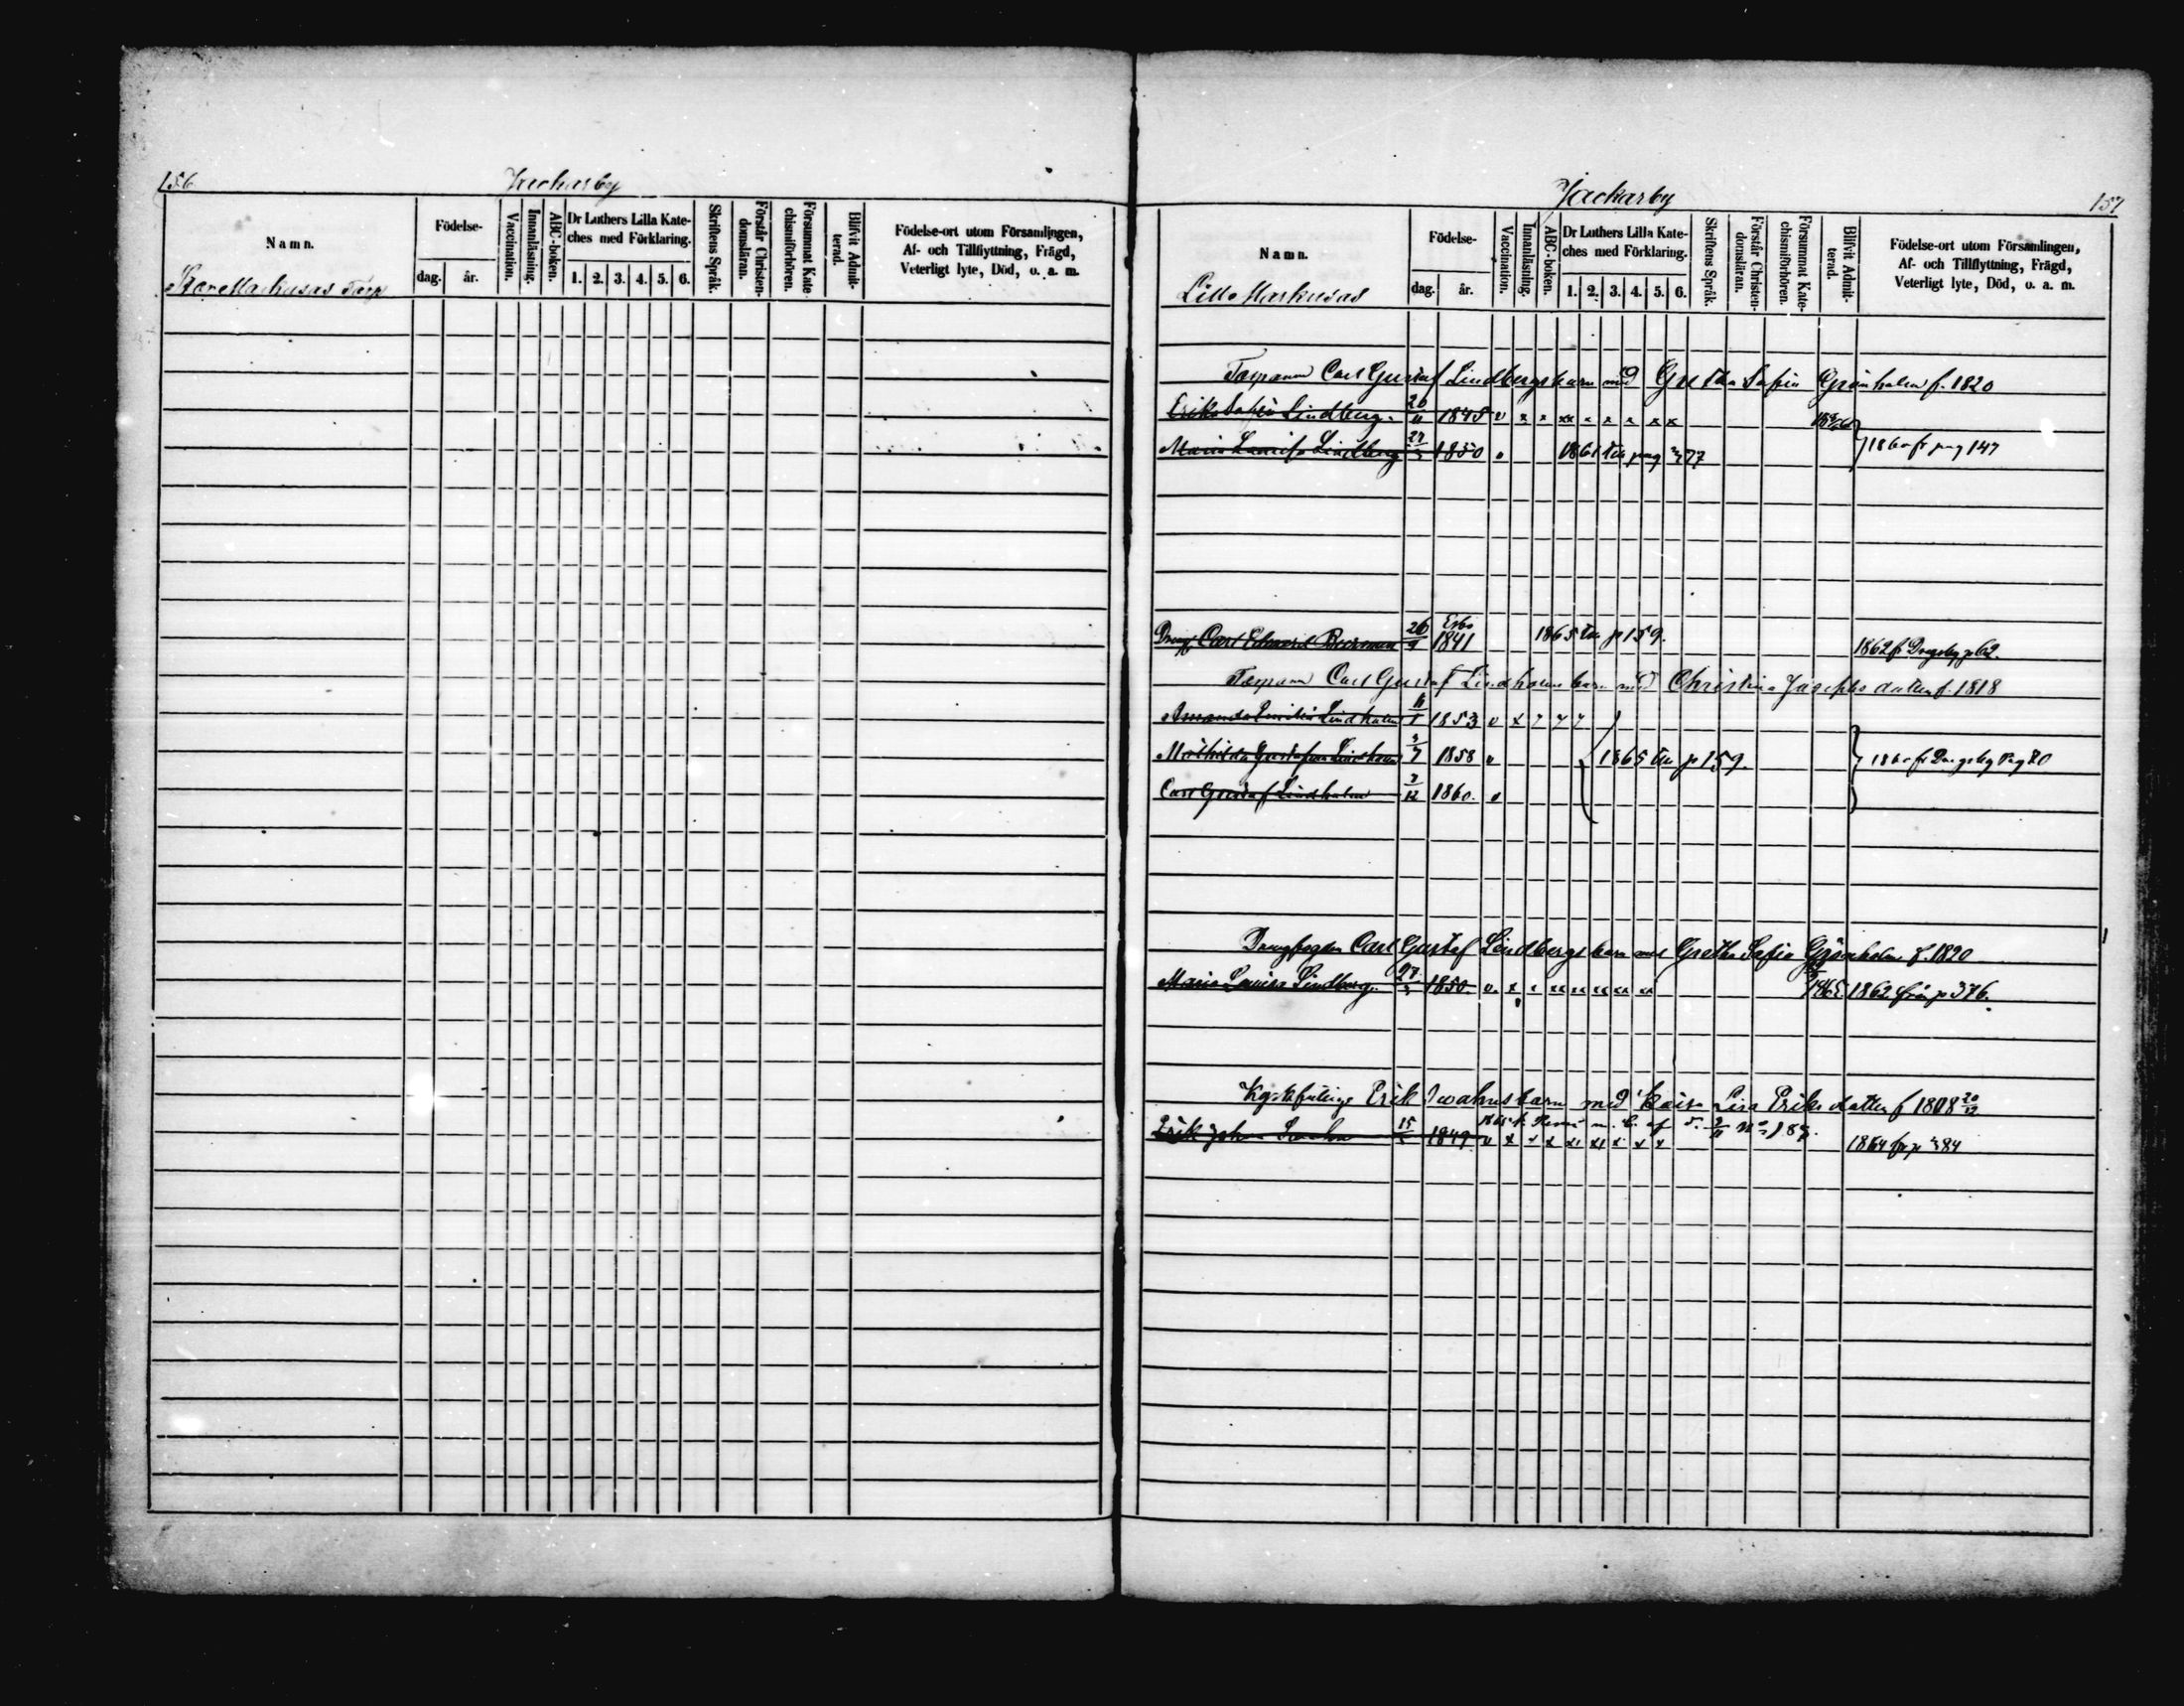 156
Jackarby
Namn.
Födelse-
dag.
år.
Vaccination.
Innanläsning.
ABC-boken.
Dr Luthers Lilla Kate-
ches med Förklaring.
1. 2. 3. 4. 5. 6.
Skriftens Språk.
Förstår Christen-
domsläran.
Försummat Kate-
chismiförhören.
Blifvit Admit-
terad.
Födelse-ort utom Församlingen,
Af- och Tillflyttning, Frägd,
Veterligt lyte, Död, o. a. m.
Torp
Jackarby
157
Namn.
Födelse-
dag.
år.
Vaccination.
Innanläsning.
ABC-boken.
Dr Luthers Lilla Kate-
ches med Förklaring.
1. 2. 3. 4. 5. 6.
Skriftens Språk.
Förstår Christen-
domsläran.
Försummat Kate-
chismiförhören.
Blifvit Admit-
terad.
Födelse-ort utom Församlingen,
Af- och Tillflyttning, Frägd,
Veterligt lyte, Död, o. a. m.
Lilla Markusas
Carl Gustaf Lindbergs barn med Gretha Sofia Grönholm f. 1820
Erika Sofia Lindberg 20/11 1845 v x x xx x x x x x
Maria Lovisa Lindberg 1850 v 1861 till pag 377 1860 fr pag 147
Carl Edvard 26/9 1841 Esbo 1865 till p 159. 1862 fr p 62.
Carl Gustaf Lindholms barn med Christina Josephsdotter f. 1818
Amanda Emilia Lindholm 1853 v x
Mathilda Gustafva Lindholm 3/7 1858 v 1865 till p 159. 1860 fr pag 70
Carl Gustaf Lindholm 7/12 1860. v
Carl Gustaf Lindbergs barn med Gretha Sofia Grönholm f. 1820
Maria Lovisa Lindberg 1850. v. x x xx xx xx xx xx 1865 1862 från p 376.
Erik Iwahns barn med Caisa Lisa Eriksdotter f 1808 20/12
Erik Johan Iwahn 15 1849 v x x x x x x x x 1864 fr p 384